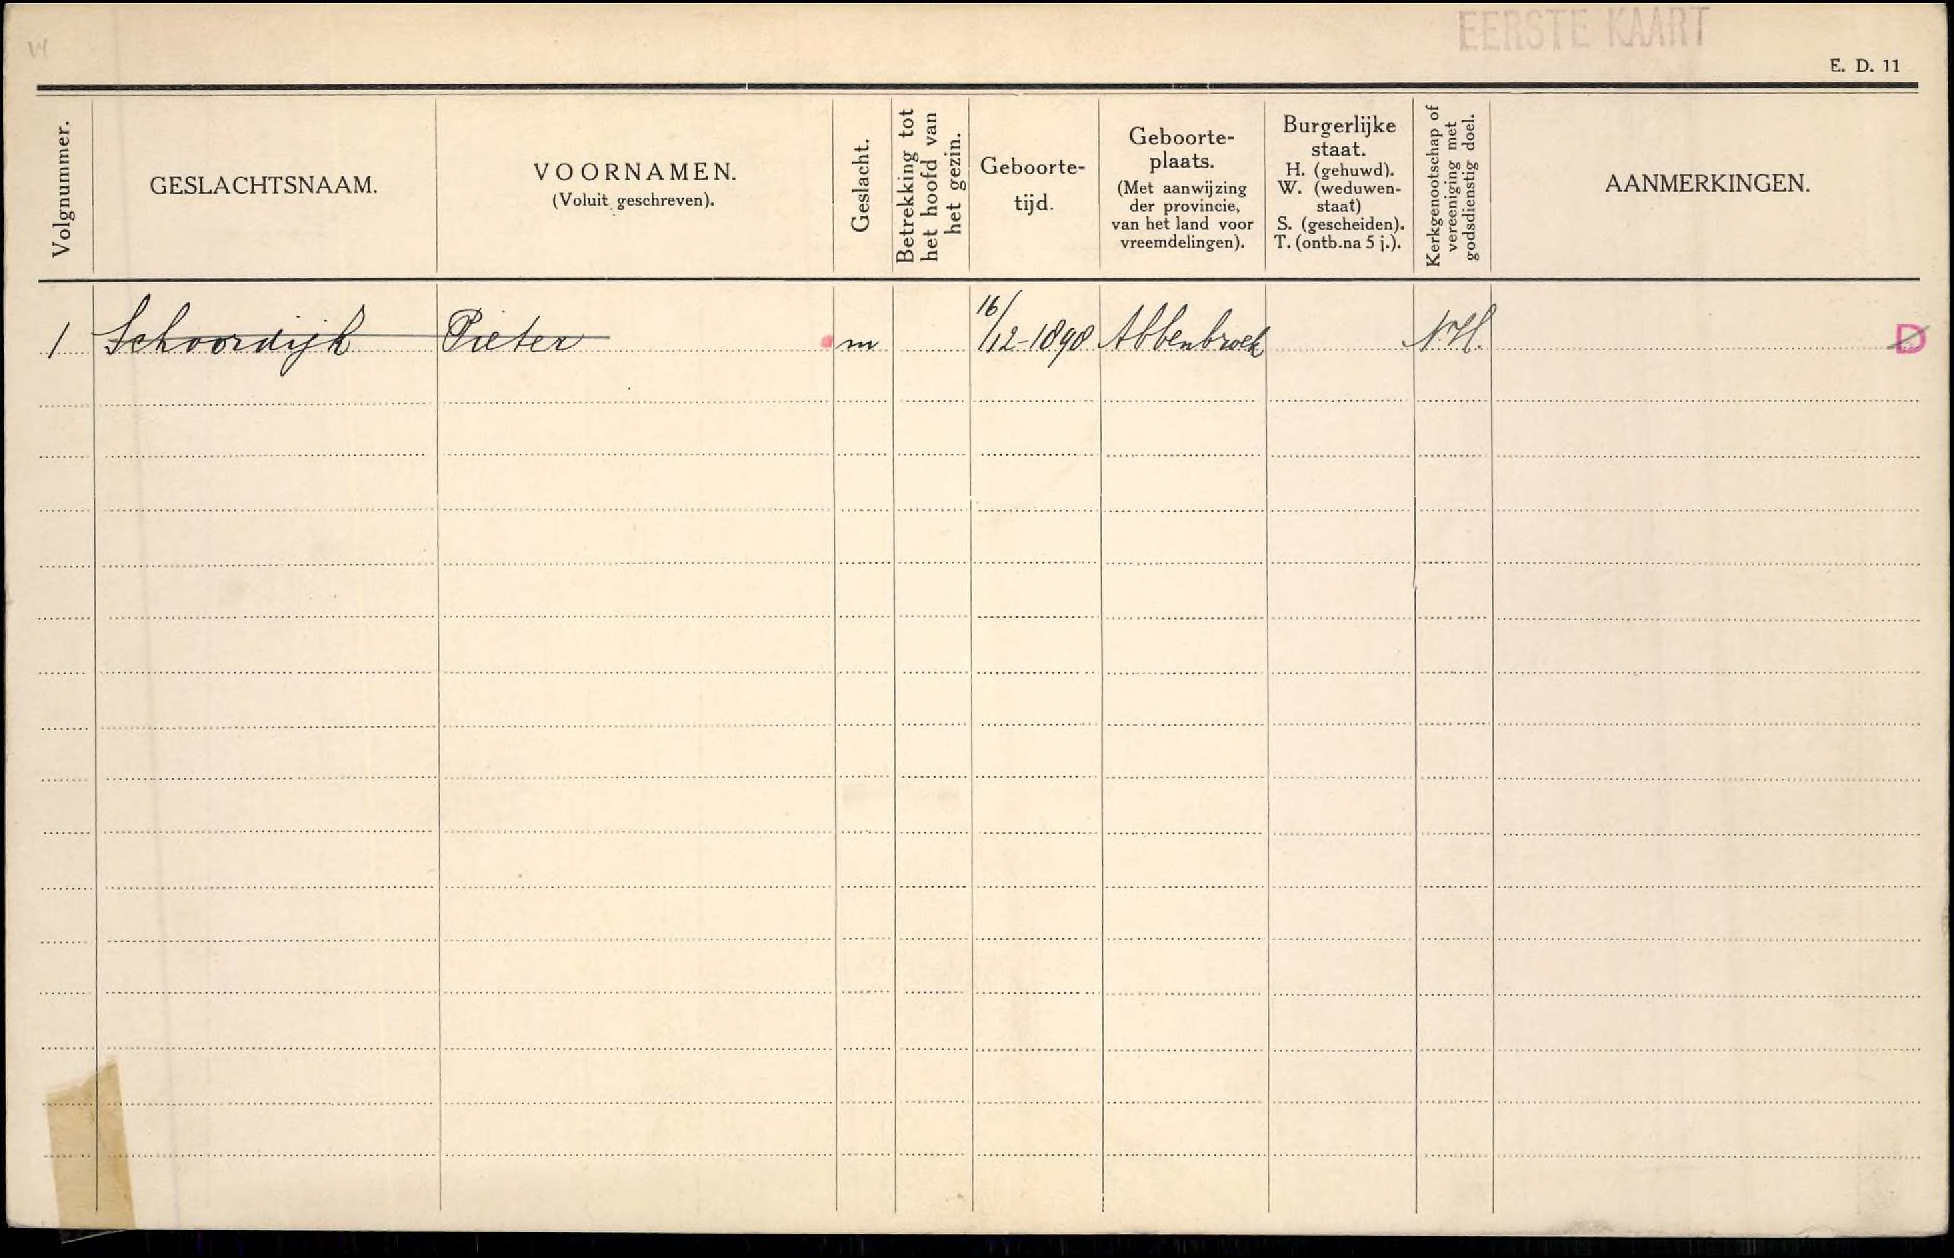 EERSTE KAART
14
E. D. 11
Volgnummer.
GESLACHTSNAAM.
VOORNAMEN.
(Voluit geschreven).
Geslacht.
Betrekking tot
het hoofd van
het gezin.
Geboorte-
tijd.
Geboorte-
plaats.
(Met aanwijzing
der provincie,
van het land voor
vreemdelingen).
Burgerlijke
staat.
H. (gehuwd).
W. (weduwen-
staat)
S. (gescheiden).
T. (ontb.na 5 j.).
Kerkgenootschap of
vereeniging met
godsdienstig doel.
AANMERKINGEN.
1 Schoordijk Pieter m 16/12-1898 Abbenbroek N.H. D